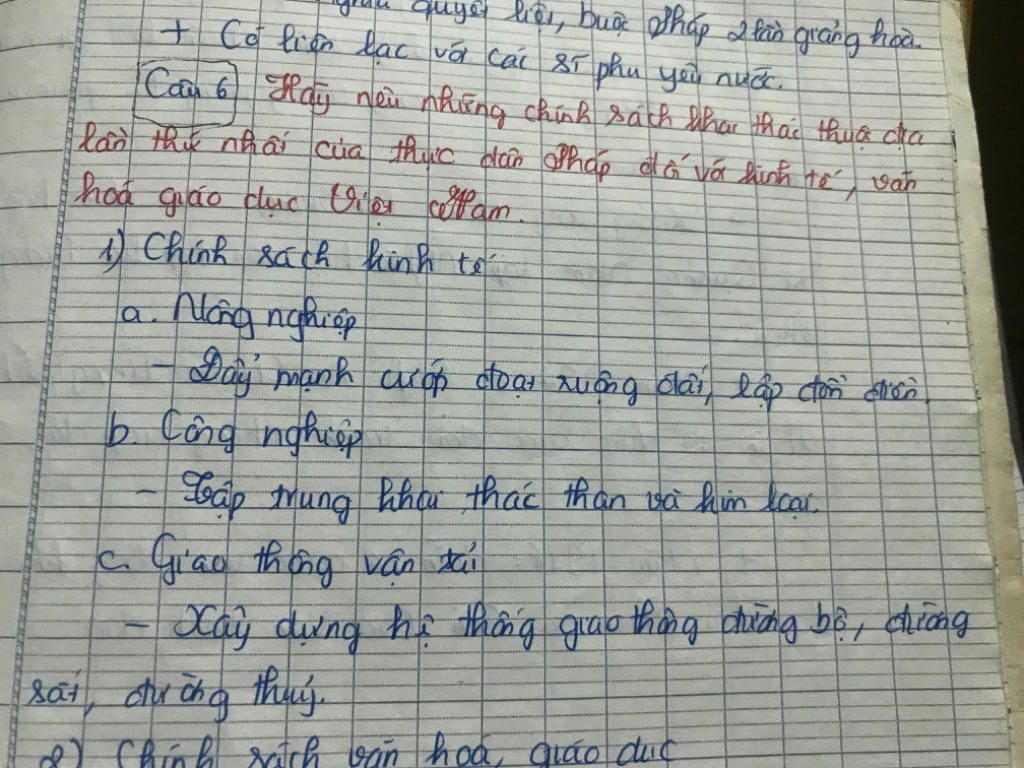 quyết liệt, buộc Pháp 2 lần giảng hoà.
+ Có liên lạc với các sĩ phu yêu nước.
Câu 6 Hãy nêu những chính sách khai thác thuộc địa
lần thứ nhất của thực dân Pháp đối với kinh tế, văn
hoá giáo dục Việt Nam.
1) Chính sách kinh tế
a. Nông nghiệp
- Đẩy mạnh cướp đoạt ruộng đất, lập đồn điền.
b. Công nghiệp
- Tập trung khai thác than và kim loại.
c. Giao thông vận tải
- Xây dựng hệ thống giao thông đường bộ, đường
sắt, đường thuỷ.
2) Chính sách văn hoá, giáo dục